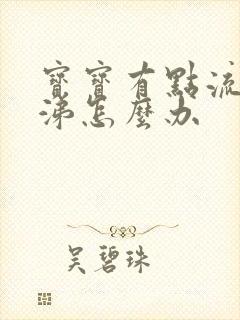 寶寶有點流
涕怎麼办
吴碧珠